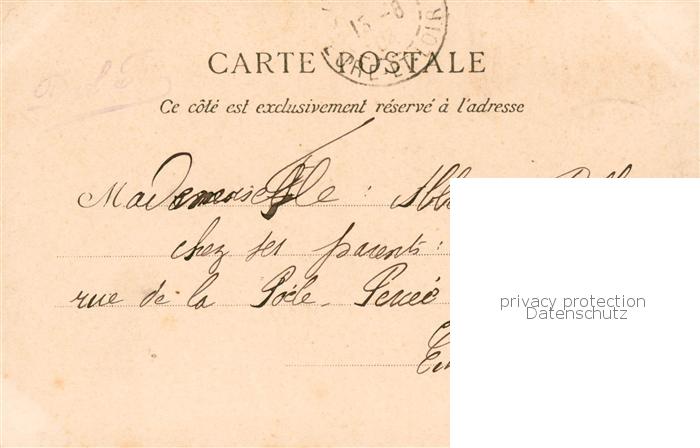 15 -8
EURE-ET-LOIR
CARTE POSTALE
Ce côté est exclusivement réservé à l'adresse
Mademoiselle :
chez ses parents :
rue de la Poële Percée
privacy protection
Datenschutz